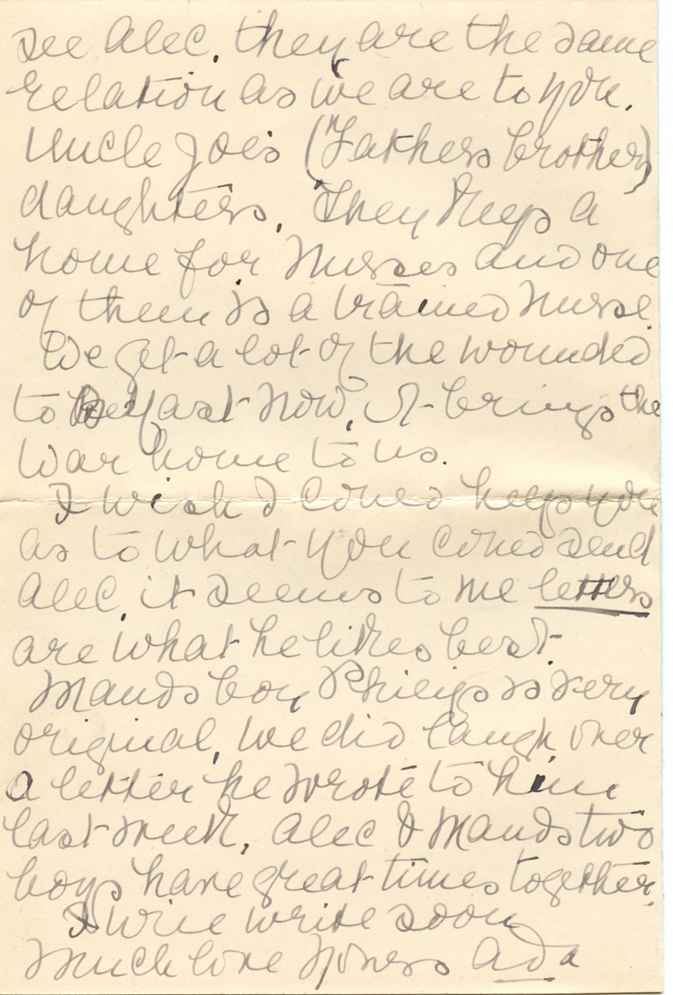 see Alec, they are the same
relation as we are to you.
Uncle Joe's (Fathers brother)
daughters, They keep a
home for Nurses and one
of them is a trained Nurse
We get a lot of the wounded
to Belfast now, It brings the
War home to us.
I wish I could help you
as to what you could send
Alec, it seems to me letters
are what he likes best.
Mauds boy Philip is very
original, we did laugh over
a letter he wrote to him
last week, Alec & Mauds two
boys have great times together.
I will write soon
Much love Yours Ada